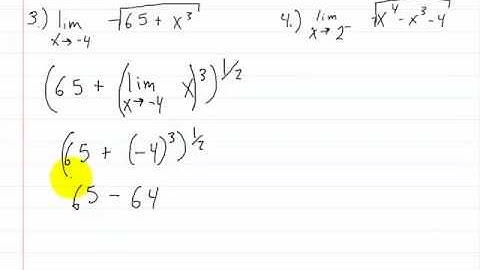 3.) lim x→-4 √65 + x³
4.) lim x→2⁻ √x⁴-x³-4
(65 + (lim x→-4 x)³)^1/2
(65 + (-4)³)^1/2
65 - 64